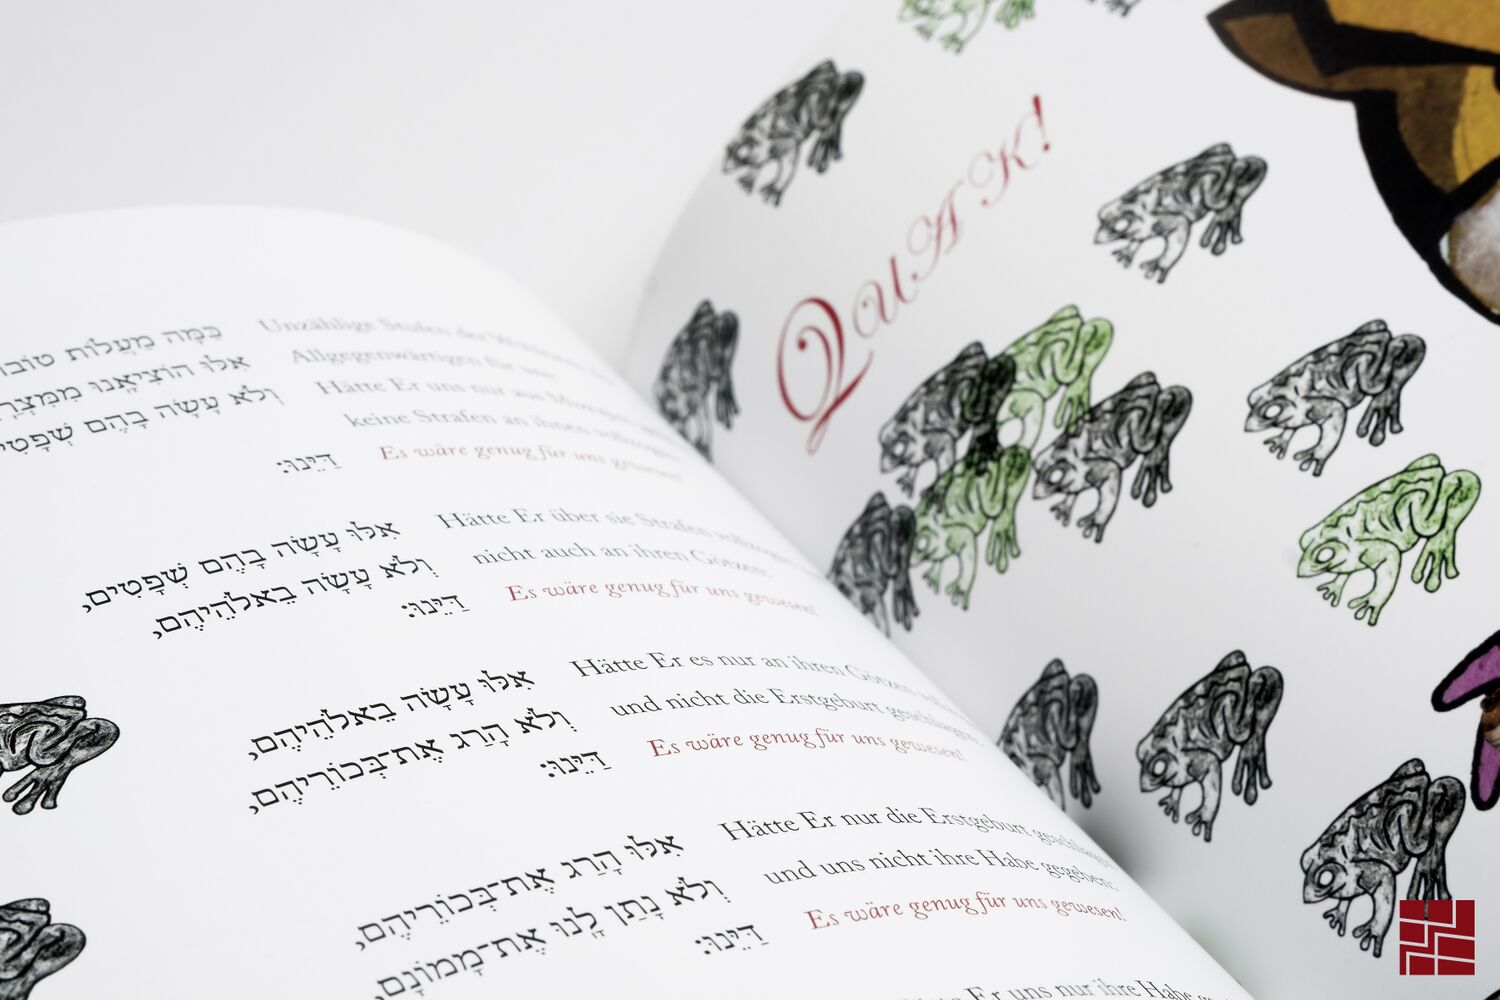 כַּמָּה מַעֲלוֹת טוֹבוֹ
אִלּוּ הוֹצִיאָֽנוּ מִמִּצְרַ
וְלֹא עָשָׂה בָהֶם שְׁפָטִים
דַּיֵּנוּ:
אִלּוּ עָשָׂה בָהֶם שְׁפָטִים,
וְלֹא עָשָׂה בֵאלֹהֵיהֶם,
דַּיֵּנוּ:
אִלּוּ עָשָׂה בֵאלֹהֵיהֶם,
וְלֹא הָרַג אֶת־בְּכוֹרֵיהֶם,
דַּיֵּנוּ:
אִלּוּ הָרַג אֶת־בְּכוֹרֵיהֶם,
וְלֹא נָתַן לָֽנוּ אֶת־מָמוֹנָם,
דַּיֵּנוּ:
Unzählige Stufen der
Allgegenwärtigen für uns:
Hätte Er uns nur aus
keine Strafen an ihnen
Es wäre genug für uns gewesen!
Hätte Er über sie Strafen
nicht auch an ihren Götzen:
Es wäre genug für uns gewesen!
Hätte Er es nur an ihren Götzen
und nicht die Erstgeburt geschlagen:
Es wäre genug für uns gewesen!
Hätte Er nur die Erstgeburt geschlagen
und uns nicht ihre Habe gegeben:
Es wäre genug für uns gewesen!
Er uns nur ihre Habe
QUAK!